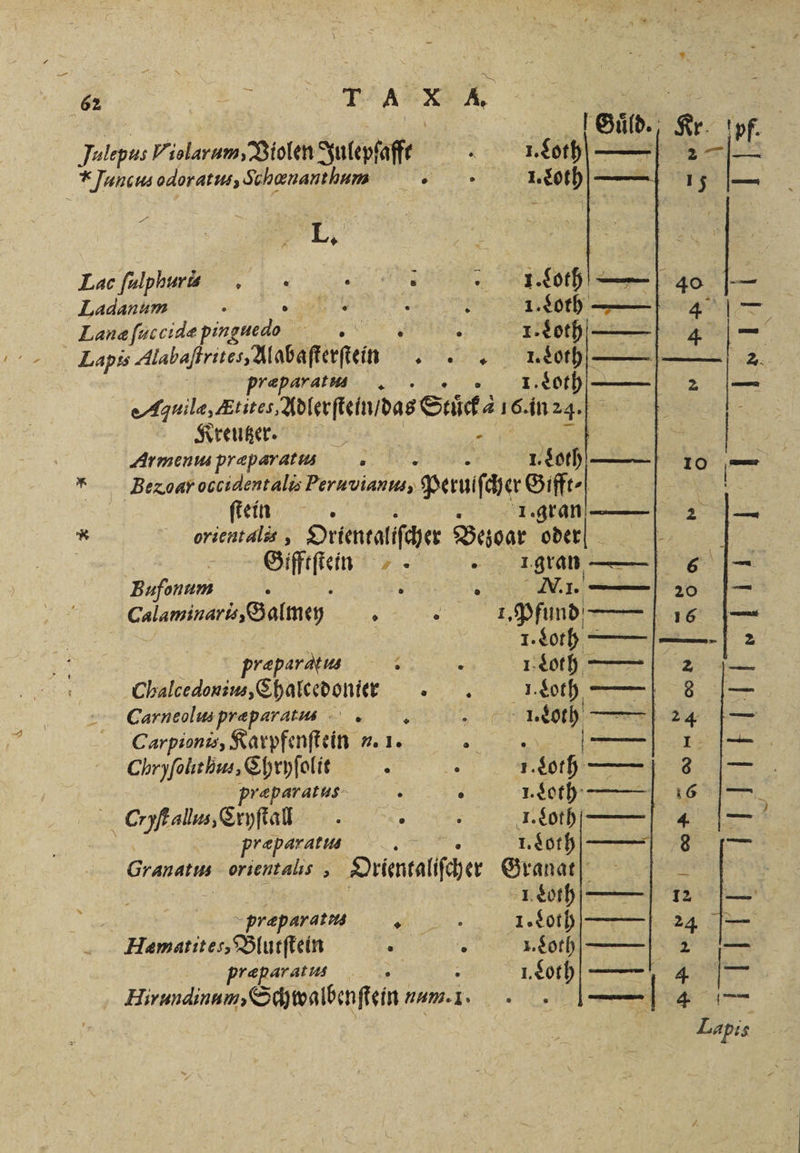 62 TAXA.
Gůld. Kr. pf.
Julepus Violarum, Violen Julepsafft . 1.Loth — 2 —
*Juncus odoratus, Schœnanthum . . 1.Loth — 15 —
L.
Lac sulphuris . . . . . 1.Loth — 40 —
Ladanum . . . . . 1.Loth — 4 —
Lanæ succidæ pinguedo . . . 1.Loth — 4 —
Lapis Alabastrites, Alabasterstein . . . 1.Loth — — 2
præparatus . . . . 1.Loth — 2 —
Aquilæ, Ætites, Adlerstein/das Stuck à 16.in 24.
Kreutzer.
Armenus præparatus . . . 1.Loth — 10 —
* Bezoar occidentalis Peruvianus, Peruischer Gifft-
stein . . . 1.gran — 2 —
* orientalis, Orientalischer Bezoar oder
Gifftstein . . 1 gran — 6 —
Bufonum . . . . N.1. — 20 —
Calaminaris, Galmey . . 1.Pfund — 16 —
1.Loth — — 2
præparatus . . 1 Loth — 2 —
Chalcedonius, Chalcedonier . . 1.Loth — 8 —
Carneolus præparatus . . . 1.Loth — 24 —
Carpionis, Karpfenstein n. 1. . . — 1 —
Chrysolithus, Chrysolit . . 1.Loth — 8 —
præparatus . . 1.Loth — 16 —
Crystallus, Crystall . . . 1.Loth — 4 —
præparatus . . 1.Loth — 8 —
Granatus orientalis, Orientalischer Granat
1.Loth — 12 —
præparatus . . 1.Loth — 24 —
Hæmatites, Blutstein . . 1.Loth — 2 —
præparatus . . 1.Loth — 4 —
Hirundinum, Schwalbenstein num. 1. . . — 4 —
Lapis